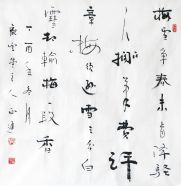 梅雪争春未肯降骚
人搁笔费评
章梅须逊雪三分白
雪却输梅一段香
丁酉年冬月